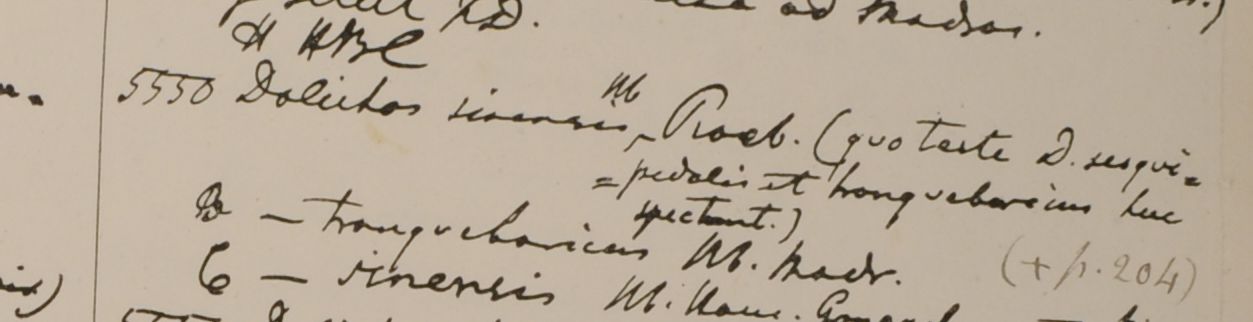 HD. ad Madras.
H HBC
5550 Dolichos sinensis, Hb Roxb. (quo teste D. sesqui=
=pedalis et tranquebaricus huc
spectant.)
B — tranquebaricus Hb. Madr. (+ p. 204)
C — sinensis Hb. Ham.